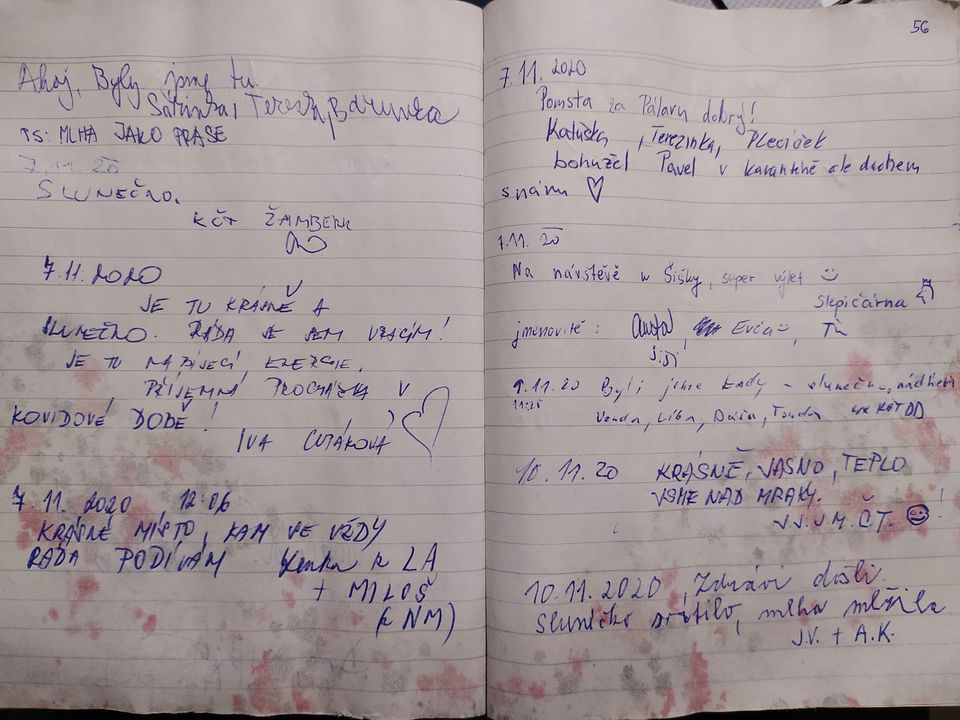 Ahoj, Byly jsme tu.
Šárinka, Terezka, Barunka
PS: MLHA JAKO PRASE
7.11.20
SLUNEČNO.
KČT ŽAMBERK
7.11.2020
JE TU KRÁSNĚ A
SLUNEČNO. RÁDA SE SEM VRACÍM!
JE TU NABÍJECÍ ENERGIE.
PŘÍJEMNÁ PROCHÁZKA V
KOVIDOVÉ DOBĚ!
IVA
7.11.2020 12:06
KRÁSNÉ MÍSTO, KAM SE VŽDY
RÁDA PODÍVÁM Lenka z LA
+ MILOŠ
(z NM)
56
7.11.2020
Pomsta za Pálavu dobrý!
Katuška, Terezinka, Plecíček
bohužel Pavel v karanténě ale duchem
s námi ♡
7.11. 20
Na návštěvě u Šišky, super výlet
Slepičárna
jmenovitě: Evča
9.11.20 Byli jsme tady - slunečno, nádherně
11:25
Venda, Líba, Dáša, Tonda
10.11.20 KRÁSNĚ, JASNO, TEPLO
JSME NAD MRAKY.
J.J.U.M. ČT. !
10.11.2020, Zdrávi došli.
Sluníčko svítilo, mlha mlžila
JV. + A.K.